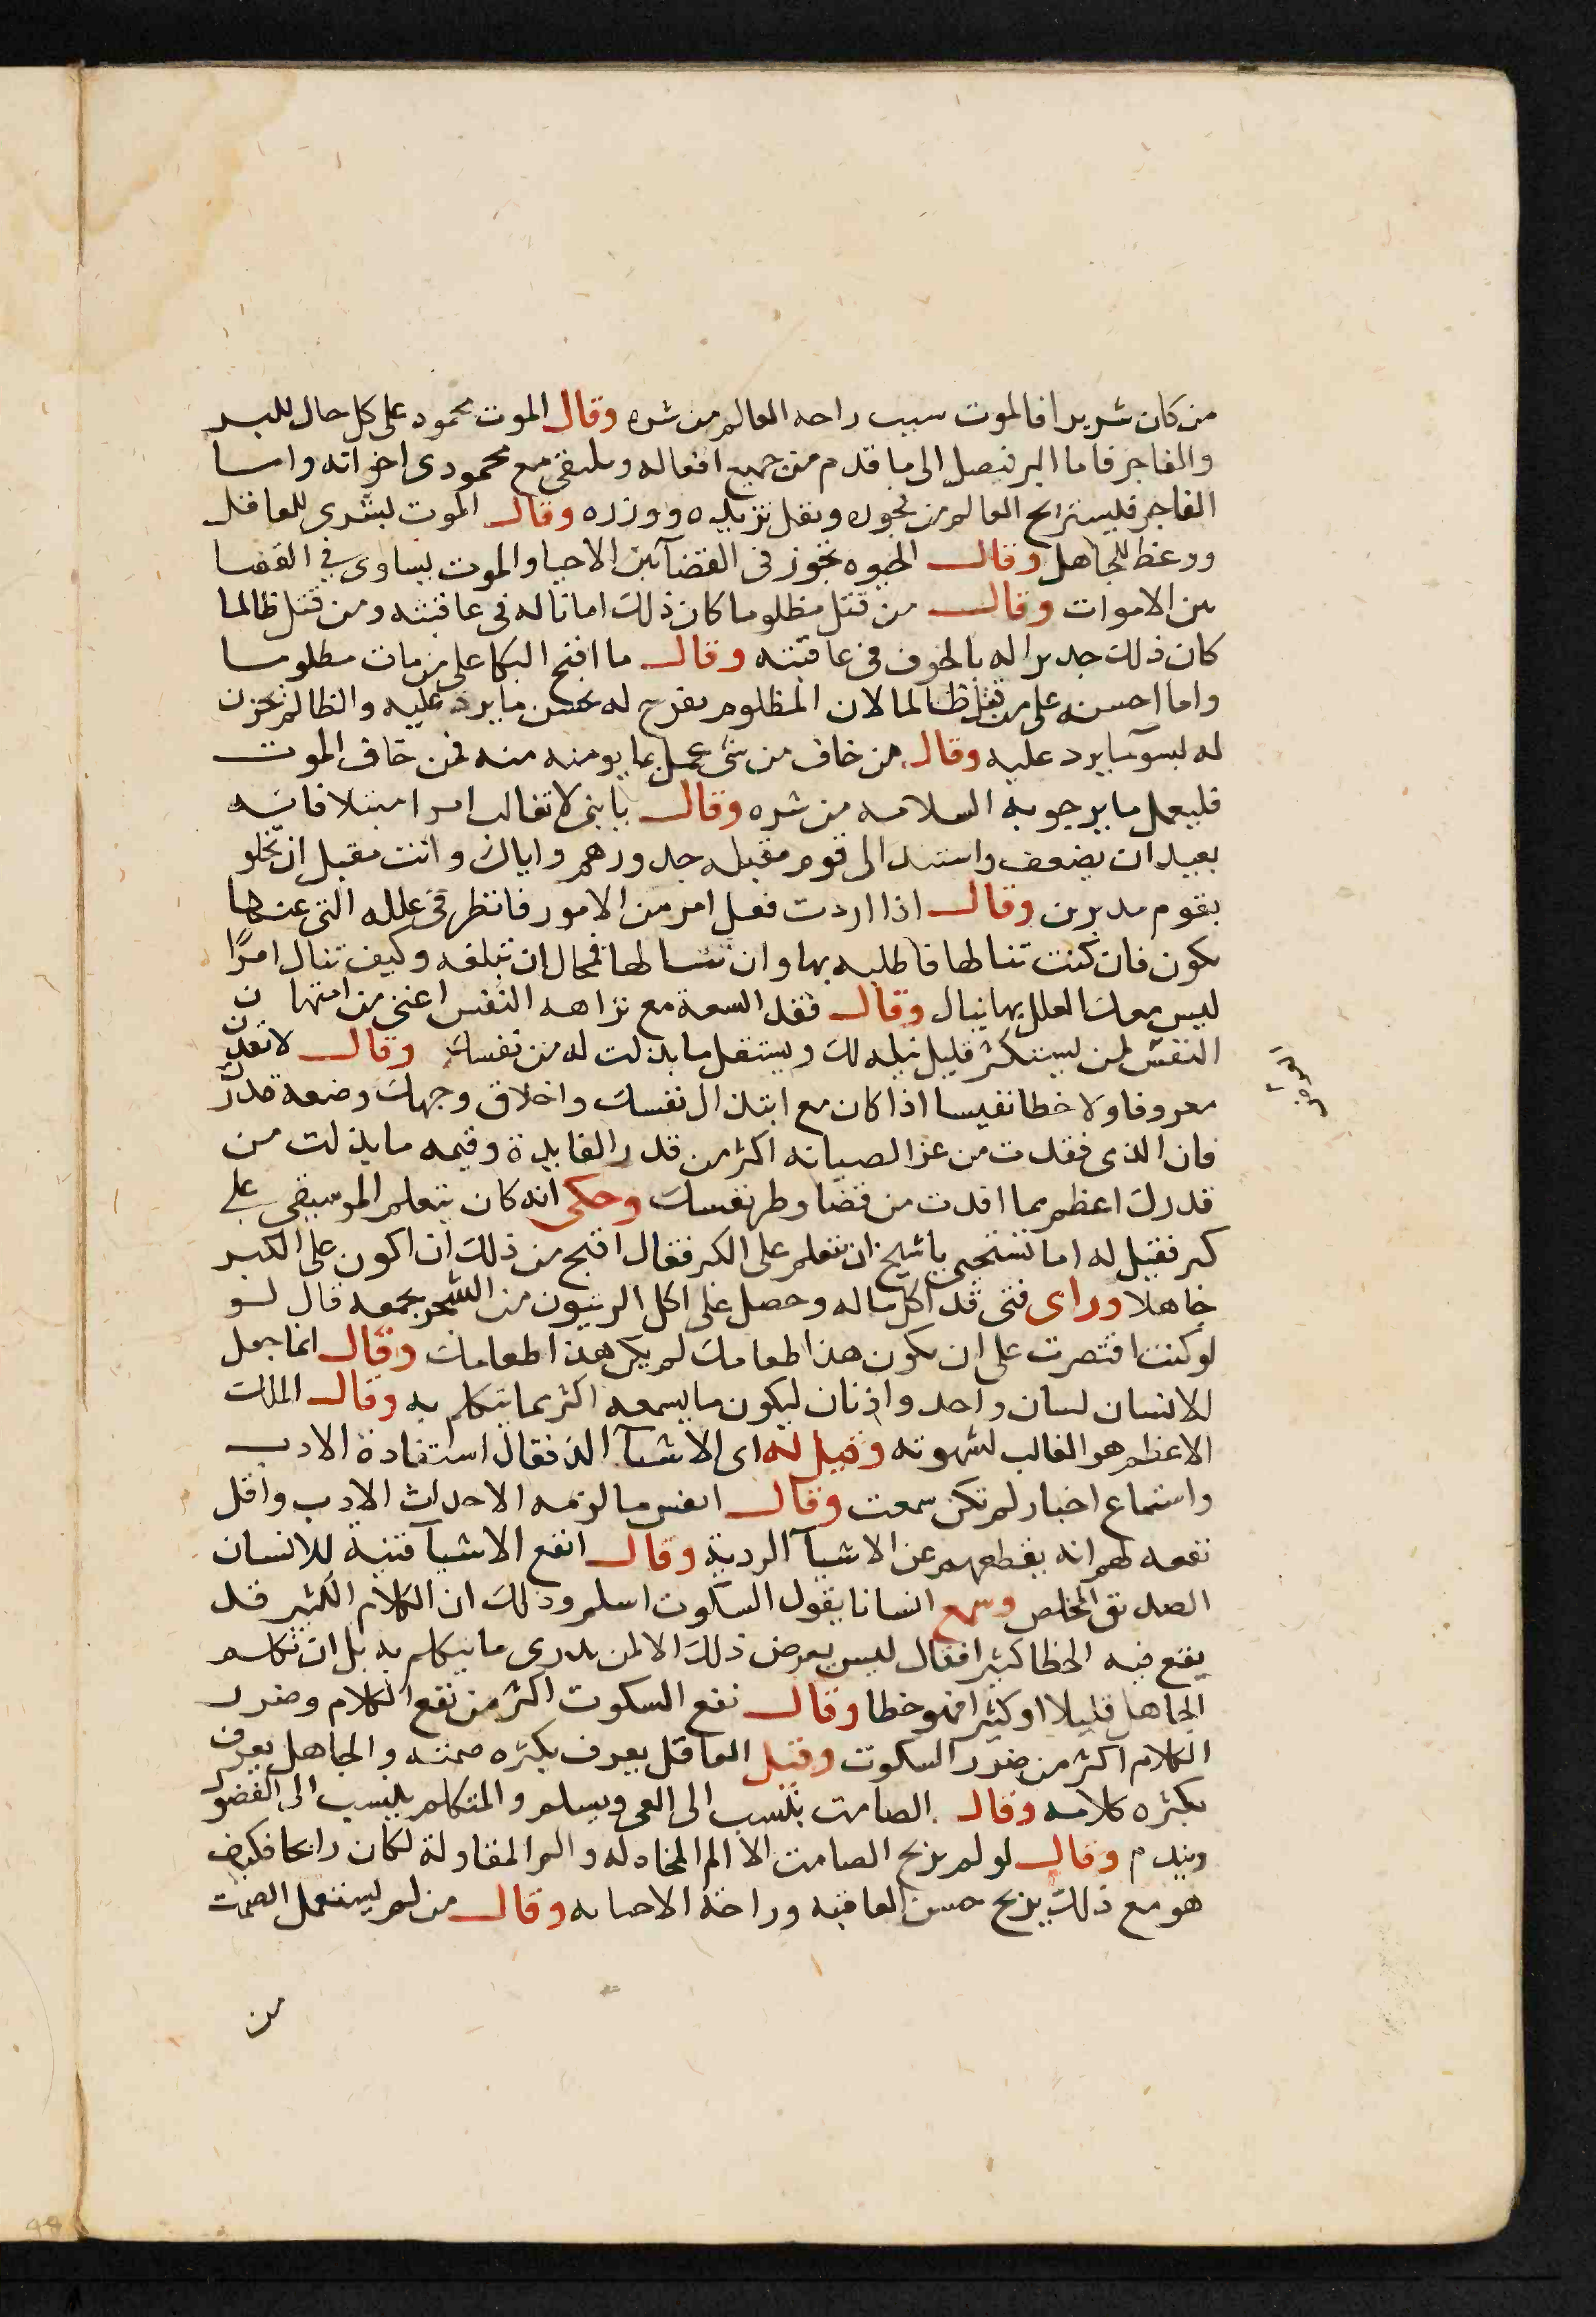 من كان شريرا فالموت سبب راحه العالم من شره وقال الموت محمود على كل حال للبر
والفاجر فاما البر فيصل الى ما قدم من جميع افعاله ويلتقى مع محمودى اخوانه واما
الفاجر فليستريح العالم من فجوره ونقل تزيده ووزره وقال الموت بشرى للعاقل
ووعظ للجاهل وقال الحيوه تجوز فى القضآ بين الاحيا والموت يساوى في القضا
بين الاموات وقال من قتل مظلوما كان ذلك اماناله فى عاقبته ومن قتل ظالما
كان ذلك جديرا له بالخوف فى عاقبته وقال ما اقبح البكا على من مات مظلوما
واما احسنه على من قتل ظالما لان المظلوم يفرح له بحسن ما يرد عليه والظالم يحزن
له لسوٓ ما يرد عليه وقال من خاف من شئ عمل بما يومنه منه فمن خاف الموت
فليعمل ما يرجو به السلامه من شره وقال يا بنى لا تغالب امرا مقبلا فانه
بعيد ان يضعف واستند الى قوم مقبله جدودهم واياك وانت مقبل ان تخلو
بقوم مدبرين وقال اذا اردت فعل امر من الامور فانظر فى علله التى عنها
يكون فان كنت تنالها فاطلبه بها وان تنالها فمحال ان تبلغه وكيف تنال امرًا
ليس معك العلل بها ينال وقال فقد السعة مع نزاهه النفس اغنى من امتهان
النفس لمن يستكثر قليل نيله لك ويستقل ما بذلت له من نفسك وقال لا تعدن
معروفا ولا خطا نفيسا اذا كان مع ابتذال نفسك واخلاق وجهك وضعة قدرك
فان الذى فقدت من عز الصيانه اكثر من قدر الفايدة وقيمه ما بذلت من
قدرك اعظم مما افدت من قضا وطر نفسك وحكى انه كان يتعلم الموسيقى على
كبر فقيل له اما تستحى يا شيخ ان تتعلم على الكبر فقال اقبح من ذلك ان اكون على الكبر
جاهلا وراى فتى قد اكل ماله وحصل على اكل الزيتون من الشجر يجمعه قال لو
لو كنت اقتصرت على ان يكون هذا طعامك لم يكن هذا طعامك وقال انما جعل
للانسان لسان واحد واذنان ليكون ما يسمعه اكثر مما يتكلم به وقال الملك
الاعظم هو الغالب لشهوته وقيل له اى الاشيآ الذ فقال استفادة الادب
واستماع اخبار لم تكن سمعت وقال انفس ما لزمه الاحداث الادب واقل
نفعه لهم انه يقطعهم عن الاشيآ الردية وقال انفع الاشيآ قنية للانسان
الصديق المخلص وسمع انسانا يقول السكوت اسلم وذلك ان الكلام الكثير قد
يقع فيه الخطا كثيرا فقال ليس يعرض ذلك الا لمن يدرى ما يتكلم به بل ان تكلم
الجاهل قليلا او كثيرا فهو خطا وقال نفع السكوت اكثر من نفع الكلام وضرر
الكلام اكثر من ضرر السكوت وقيل العاقل يعرف بكثره صمته والجاهل يعرف
بكثره كلامه وقال الصامت ينسب الى العى ويسلم والمتكلم ينسب الى الفضول
ويندم وقال لو لم يربح الصامت الا الم المجادله والم المقاولة لكان رابحا فكيف
هو مع ذلك يربح حسن العاقبه وراحة الاحبابه وقال من لم يستعمل الصمت
من